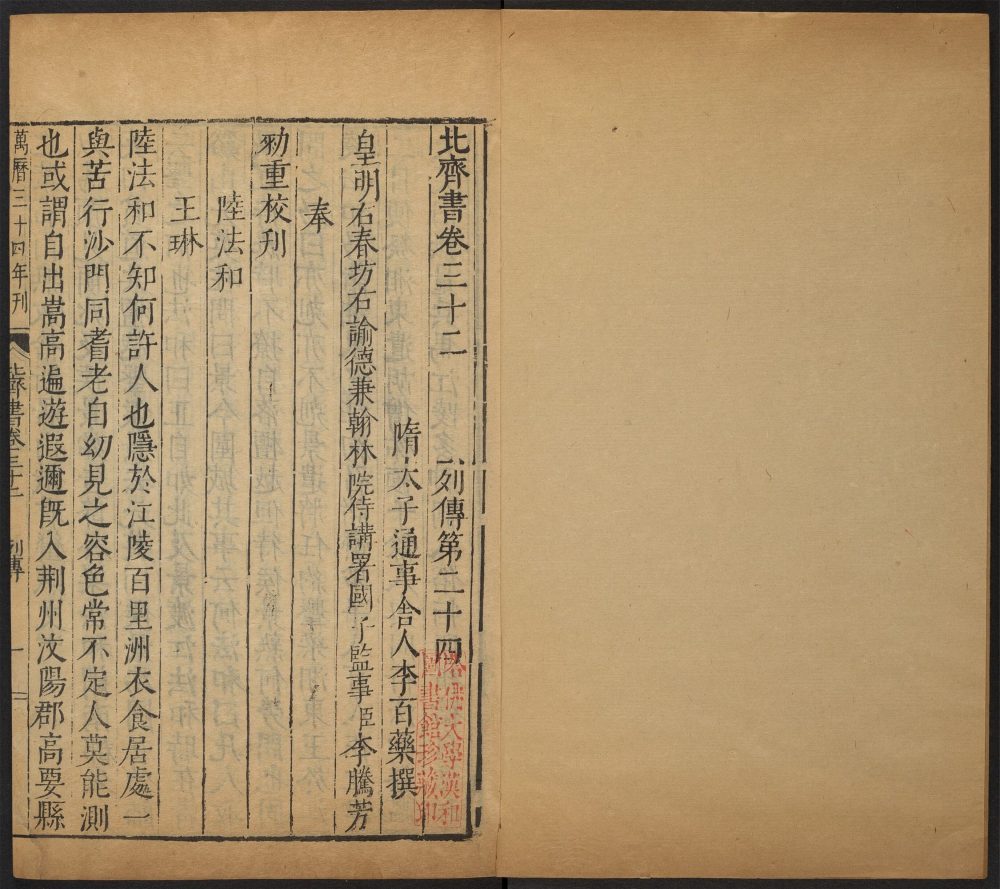 北齊書卷三十二　列傳第二十四
隋太子通事舍人李百藥撰
皇明右春坊右諭德兼翰林院侍講署國子監事臣李騰芳
奉
勑重校刋
陸法和
王琳
陸法和不知何許人也隱於江陵百里洲衣食居處一
與苦行沙門同耆老自幼見之容色常不定人莫能測
也或謂自出嵩高遍遊遐邇旣入荆州汶陽郡高要縣
萬曆三十四年刋
北齊書卷三十二
列傳
一
哈佛大學漢和
圖書館珍藏印